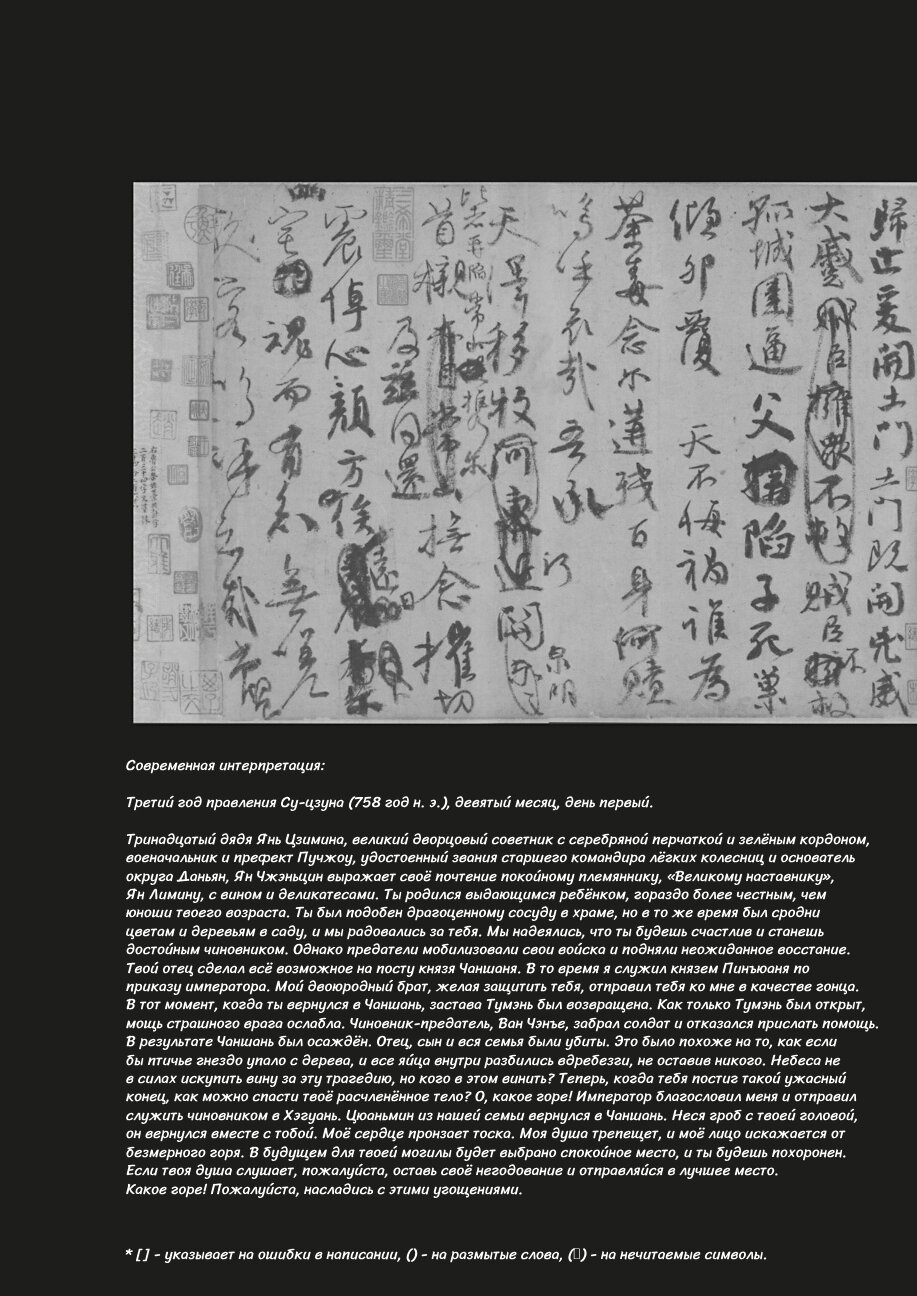 歸止爰開土門土門既開凶威
大蹙賊臣擁眾不救賊臣不救
孤城圍逼父陷子死巢
傾卵覆 天不悔禍誰為
荼毒念爾遘殘百身何贖
嗚呼哀哉吾承
天澤移牧河 泉明
比者再陷常山攜爾
首櫬 及茲同還 撫念摧切
震悼心顏方俟遠日
窆 魂而有知無嗟
久客嗚呼哀哉尚饗
Современная интерпретация:
Третий год правления Су-цзуна (758 год н. э.), девятый месяц, день первый.
Тринадцатый дядя Янь Цзимина, великий дворцовый советник с серебряной перчаткой и зелёным кордоном,
военачальник и префект Пучжоу, удостоенный звания старшего командира лёгких колесниц и основатель
округа Даньян, Ян Чжэньцин выражает своё почтение покойному племяннику, «Великому наставнику»,
Ян Лимину, с вином и деликатесами. Ты родился выдающимся ребёнком, гораздо более честным, чем
юноши твоего возраста. Ты был подобен драгоценному сосуду в храме, но в то же время был сродни
цветам и деревьям в саду, и мы радовались за тебя. Мы надеялись, что ты будешь счастлив и станешь
достойным чиновником. Однако предатели мобилизовали свои войска и подняли неожиданное восстание.
Твой отец сделал всё возможное на посту князя Чаншаня. В то время я служил князем Пинъюаня по
приказу императора. Мой двоюродный брат, желая защитить тебя, отправил тебя ко мне в качестве гонца.
В тот момент, когда ты вернулся в Чаншань, застава Тумэнь был возвращена. Как только Тумэнь был открыт,
мощь страшного врага ослабла. Чиновник-предатель, Ван Чэнъе, забрал солдат и отказался прислать помощь.
В результате Чаншань был осаждён. Отец, сын и вся семья были убиты. Это было похоже на то, как если
бы птичье гнездо упало с дерева, и все яйца внутри разбились вдребезги, не оставив никого. Небеса не
в силах искупить вину за эту трагедию, но кого в этом винить? Теперь, когда тебя постиг такой ужасный
конец, как можно спасти твоё расчленённое тело? О, какое горе! Император благословил меня и отправил
служить чиновником в Хэгуань. Цюаньмин из нашей семьи вернулся в Чаншань. Неся гроб с твоей головой,
он вернулся вместе с тобой. Моё сердце пронзает тоска. Моя душа трепещет, и моё лицо искажается от
безмерного горя. В будущем для твоей могилы будет выбрано спокойное место, и ты будешь похоронен.
Если твоя душа слушает, пожалуйста, оставь своё негодование и отправляйся в лучшее место.
Какое горе! Пожалуйста, насладись с этими угощениями.
* [ ] - указывает на ошибки в написании, () - на размытые слова, (□) - на нечитаемые символы.